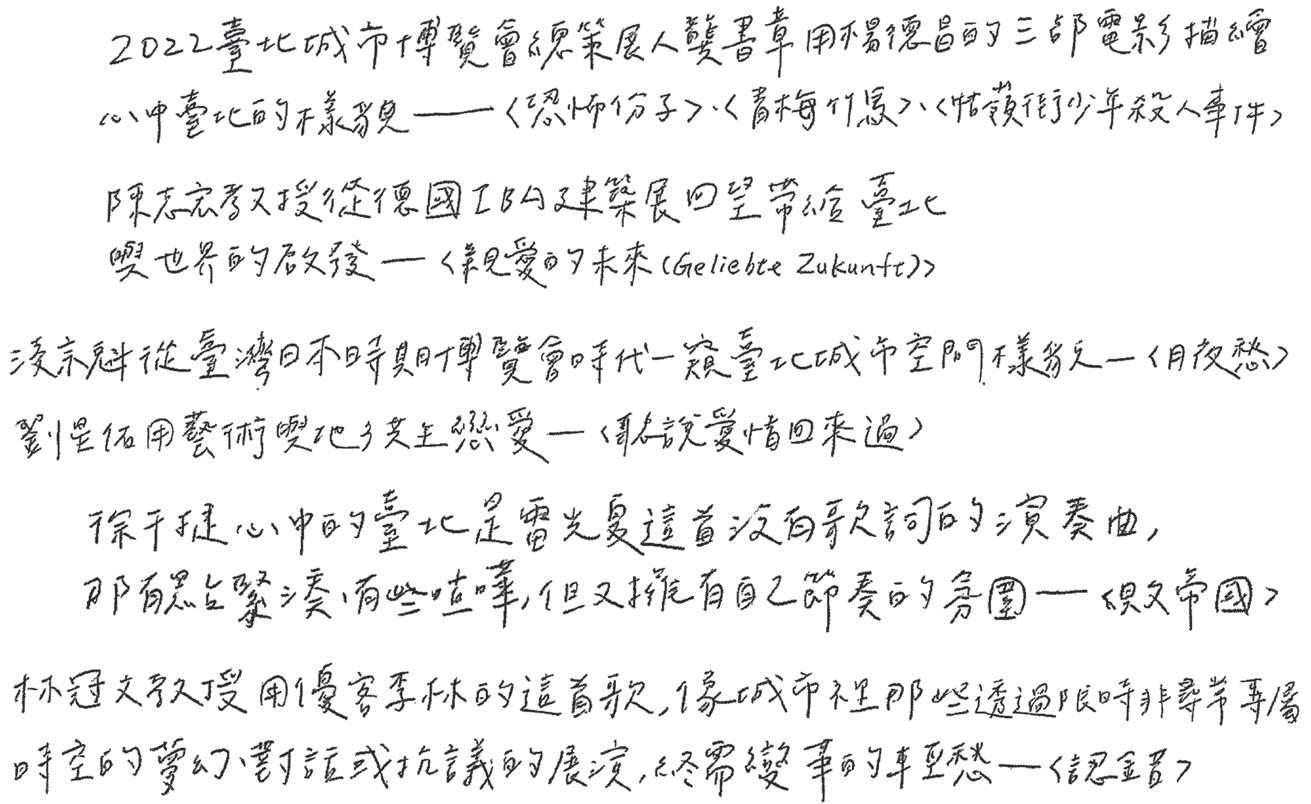 2022臺北城市博覽會總策展人龔書章用楊德昌的三部電影描繪
心中臺北的樣貌——〈恐怖份子〉、〈青梅竹馬〉、〈牯嶺街少年殺人事件〉
陳志宏教授從德國IBA建築展回望帶給臺北
與世界的啟發—〈親愛的未來(Geliebte Zukunft)〉
凌宗魁從臺灣日本時期博覽會時代一窺臺北城市空間樣貌—〈月夜愁〉
劉惺佑用藝術與地方共生戀愛—〈聽說愛情回來過〉
徐千捷心中的臺北是雷光夏這首沒有歌詞的演奏曲,
那有點緊湊、有些喧嘩,但又擁有自己節奏的氛圍—〈與文帝國〉
林冠文教授用優客李林的這首歌,像城市裡那些透過限時非尋常專屬
時空的夢幻、對話或抗議的展演,終需變革的輕愁—〈認錯〉